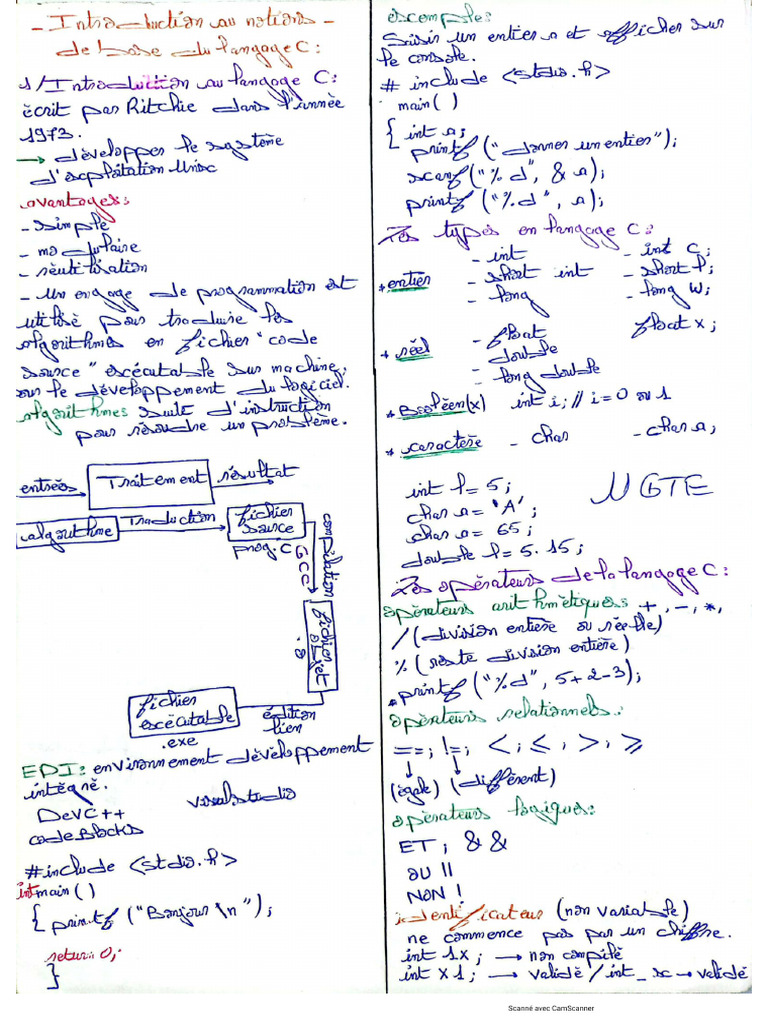 - Introduction au notions -
de base du langage C :
1/ Introduction au langage C :
écrit par Ritchie dans l'année
1973.
→ développer le système
d'exploitation Unix
avantages :
- simple
- modulaire
- réutilisation
- un langage de programmation est
utilisé pour traduire les
algorithmes en fichier "code
source" exécutable sur machine,
ou le développement du logiciel.
algorithmes suite d'instruction
pour résoudre un problème.
entrées Traitement résultat
algorithme Traduction fichier source
prog.C
compilation
GCC
fichier objet
.o
fichier
exécutable
.exe
édition
lien
EDI : environnement développement
intégré.
DevC++
visual studio
codeBlocks
#include <stdio.h>
int main ( )
{ printf ("Bonjour \n") ;
return 0;
}
exemple :
Saisir un entier a et afficher sur
le console.
# include <stdio.h>
main ( )
{ int a;
printf ("donner un entier");
scanf ("% d", & a);
printf ("%.d", a);
Les types en langage C :
* entier - int - int c;
- short int - short l;
- long - long w;
* réel - float float x;
- double
- long double
* Booléen (x) int i; // i = 0 ou 1
* caractère - char - char a;
int l = 5;
char a = 'A' ;
char a = 65 ;
double l = 5.15;
NGTE
Les opérateurs de la langage C :
opérateurs arithmétiques : + , - , *,
/ (division entière ou réelle)
% (reste division entière)
* printf ("%d", 5+2-3);
opérateurs relationnels :
== ; != , < ; ≤ , > ; ≥
(égale) (différent)
opérateurs logiques :
ET ; & &
OU ||
NON !
identificateur (non variable)
ne commence pas par un chiffre.
int 1x ; → non compilé
int x1 ; → validé / int _x → validé
Scanné avec CamScanner